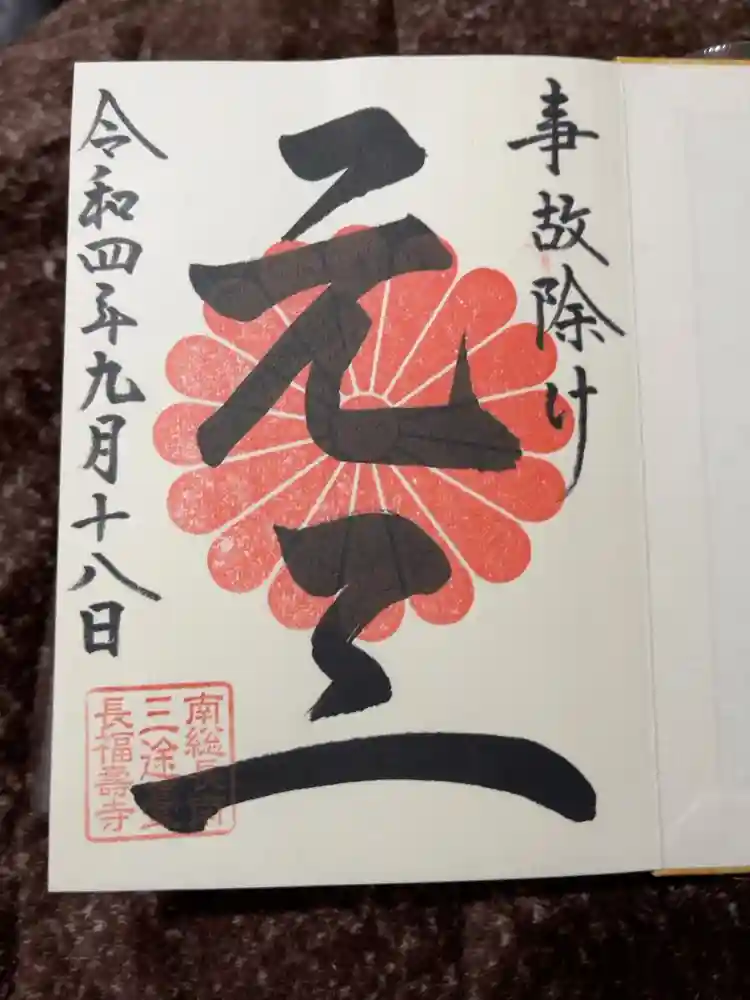 事故除け
元三
令和四年九月十八日
南総長南
三途
長福壽寺